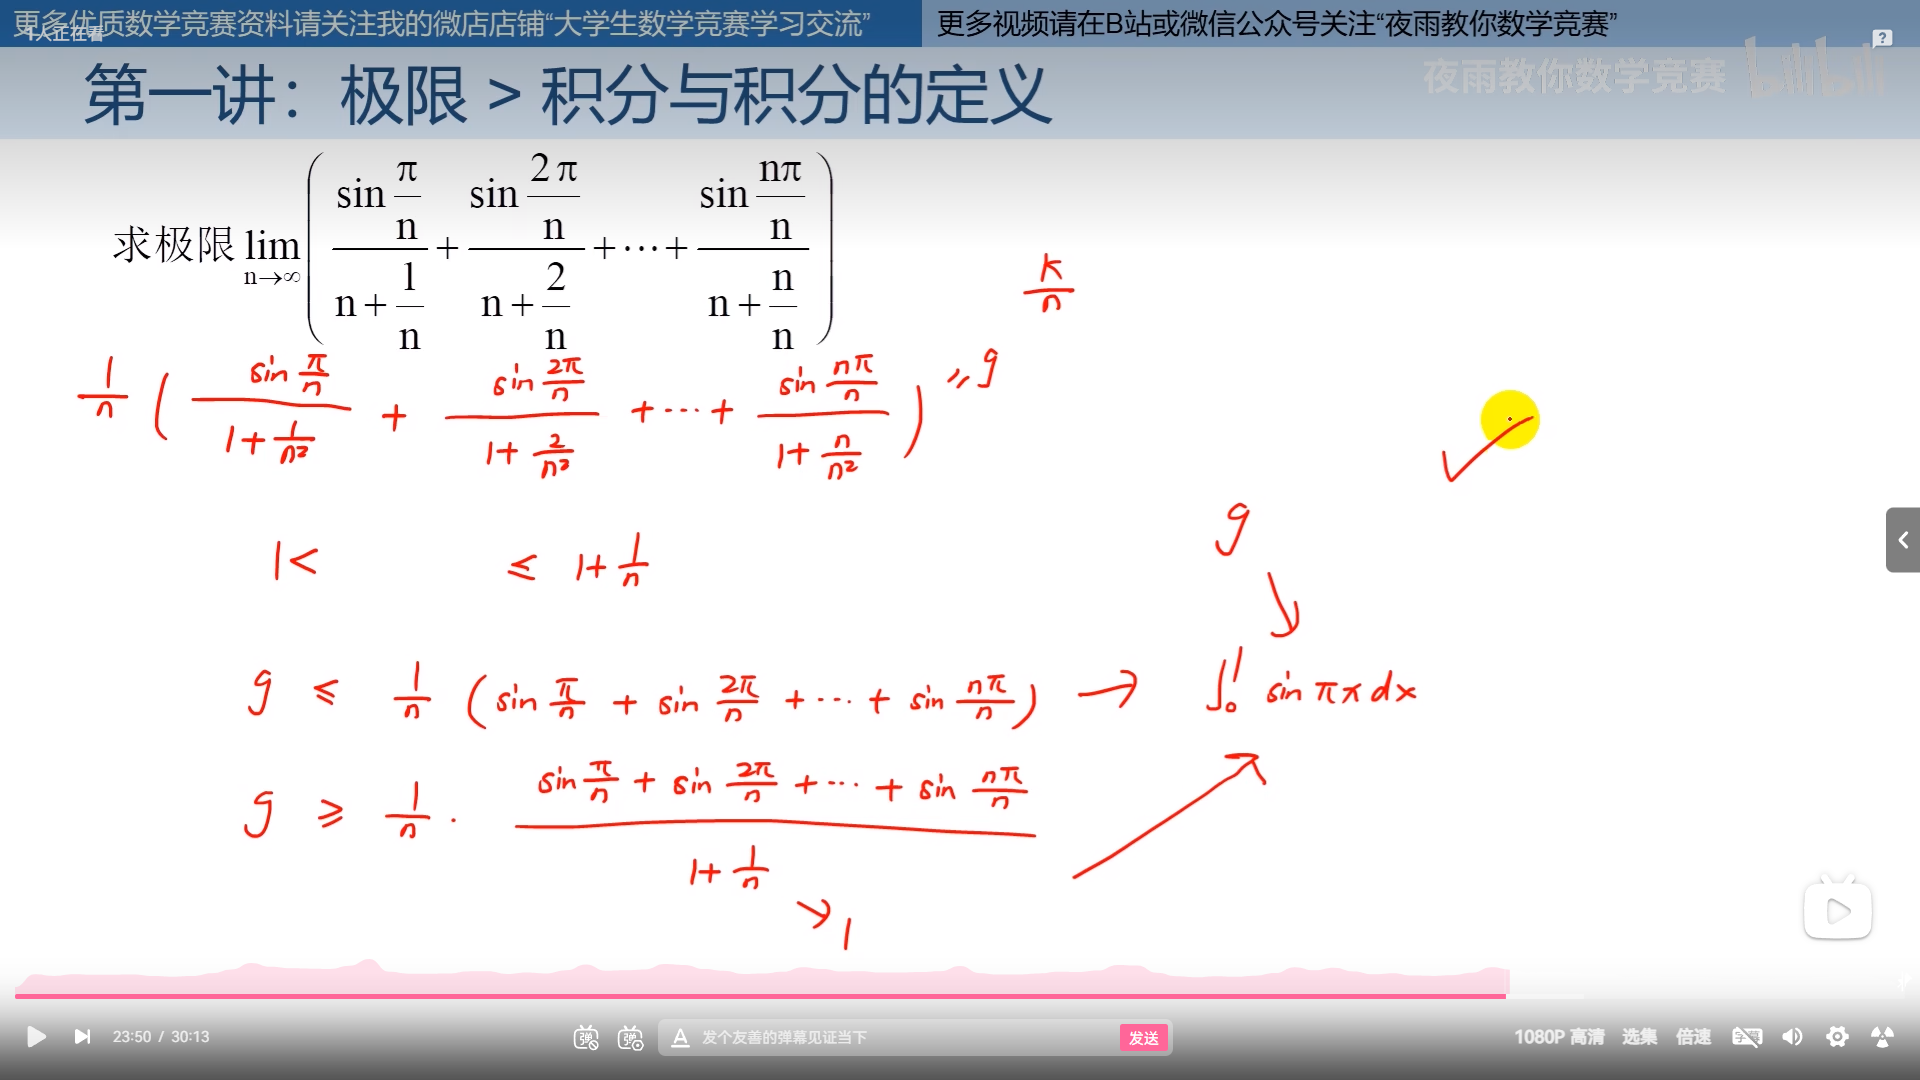 更多优质数学竞赛资料请关注我的微店店铺“大学生数学竞赛学习交流” 更多视频请在B站或微信公众号关注“夜雨教你数学竞赛”
1人正在看
第一讲：极限 > 积分与积分的定义
夜雨教你数学竞赛 bilibili
求极限 lim n→∞ ( sin π/n / (n + 1/n) + sin 2π/n / (n + 2/n) + ⋯ + sin nπ/n / (n + n/n) )
k/n
1/n ( sin π/n / (1 + 1/n²) + sin 2π/n / (1 + 2/n²) + ⋯ + sin nπ/n / (1 + n/n²) ) = g
1 < ≤ 1 + 1/n
g
g ≤ 1/n ( sin π/n + sin 2π/n + ⋯ + sin nπ/n ) → ∫₀¹ sin πx dx
g ≥ 1/n · (sin π/n + sin 2π/n + ⋯ + sin nπ/n) / (1 + 1/n)
→ 1
23:50 / 30:13 弹 弹 A 发个友善的弹幕见证当下 发送 1080P 高清 选集 倍速 字幕